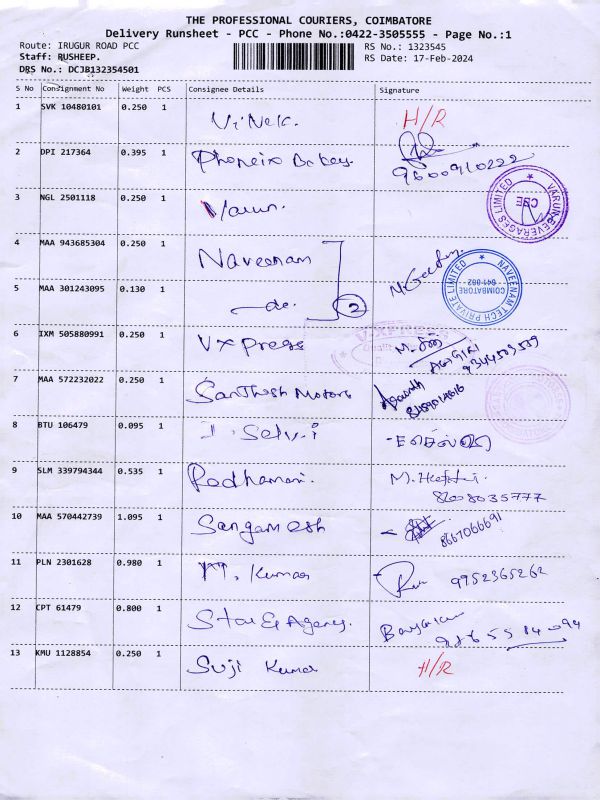 THE PROFESSIONAL COURIERS, COIMBATORE
Delivery Runsheet - PCC - Phone No.:0422-3505555 - Page No.:1
Route: IRUGUR ROAD PCC
RS No.: 1323545
Staff: RUSHEEP.
RS Date: 17-Feb-2024
DRS No.: DCJB132354501
S No Consignment No Weight PCS Consignee Details Signature
1 SVK 10480101 0.250 1 H/R
2 DPI 217364 0.395 1 9600910222
3 NGL 2501118 0.250 1 Varun. VARUN BEVERAGES LIMITED CBE
4 MAA 943685304 0.250 1 Naveenam
5 MAA 301243095 0.130 1 -do. 2 NAVEENAM TECH PRIVATE LIMITED COIMBATORE
6 IXM 505880991 0.250 1 VXpress
7 MAA 572232022 0.250 1 Santhosh Motors
8 BTU 106479 0.095 1 Selvi
9 SLM 339794344 0.535 1 Radhamani. 8608035777
10 MAA 570442739 1.095 1 Sangamesh 8667066691
11 PLN 2301628 0.980 1 M. Kumar 9952365262
12 CPT 61479 0.800 1 Agency.
13 KMU 1128854 0.250 1 Suji Kumar H/R